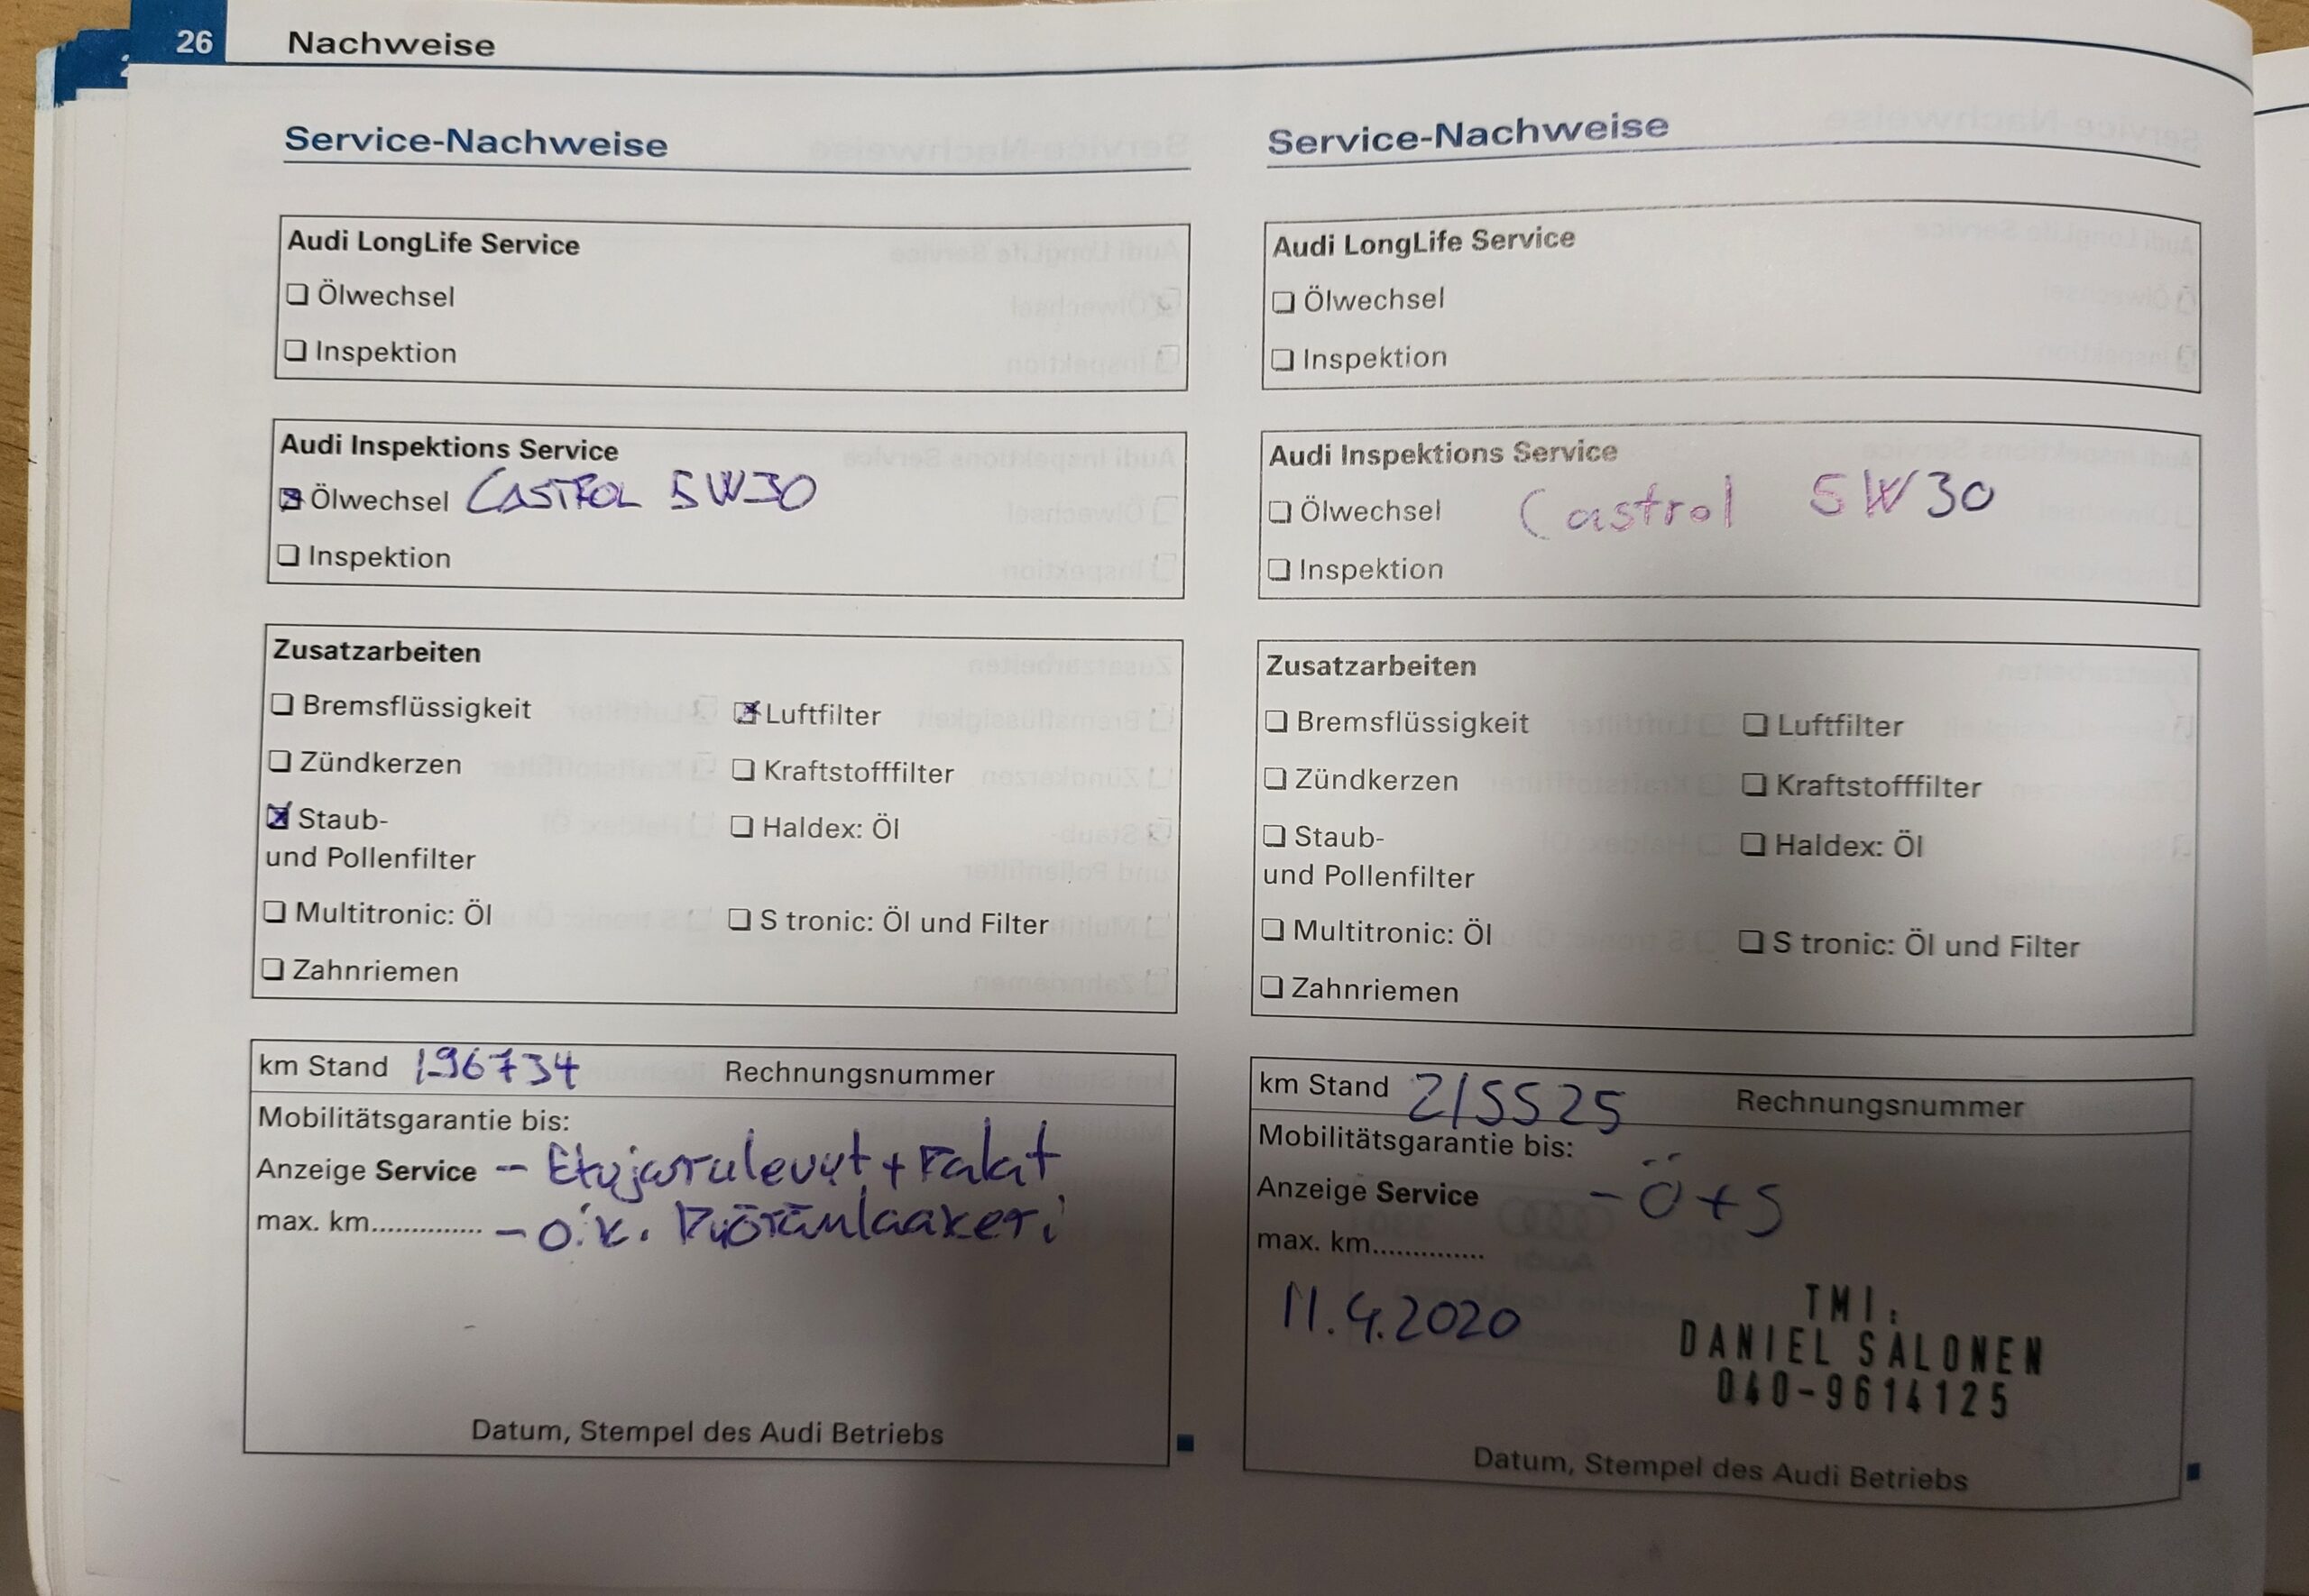 26 Nachweise
Service-Nachweise
Audi LongLife Service
❏ Ölwechsel
❏ Inspektion
Audi Inspektions Service
☒ Ölwechsel CASTROL 5W30
❏ Inspektion
Zusatzarbeiten
❏ Bremsflüssigkeit ☒ Luftfilter
❏ Zündkerzen ❏ Kraftstofffilter
☒ Staub- ❏ Haldex: Öl
und Pollenfilter
❏ Multitronic: Öl ❏ S tronic: Öl und Filter
❏ Zahnriemen
km Stand 196734 Rechnungsnummer
Mobilitätsgarantie bis:
Anzeige Service -- Etujarrulevyt + Palat
max. km.............. - o.k. Pyöränlaakeri
Datum, Stempel des Audi Betriebs
Service-Nachweise
Audi LongLife Service
❏ Ölwechsel
❏ Inspektion
Audi Inspektions Service
❏ Ölwechsel Castrol 5W30
❏ Inspektion
Zusatzarbeiten
❏ Bremsflüssigkeit ❏ Luftfilter
❏ Zündkerzen ❏ Kraftstofffilter
❏ Staub- ❏ Haldex: Öl
und Pollenfilter
❏ Multitronic: Öl ❏ S tronic: Öl und Filter
❏ Zahnriemen
km Stand 215525 Rechnungsnummer
Mobilitätsgarantie bis:
Anzeige Service - Ö + S
max. km..............
11.4.2020
TMI.
DANIEL SALONEN
040-9614125
Datum, Stempel des Audi Betriebs